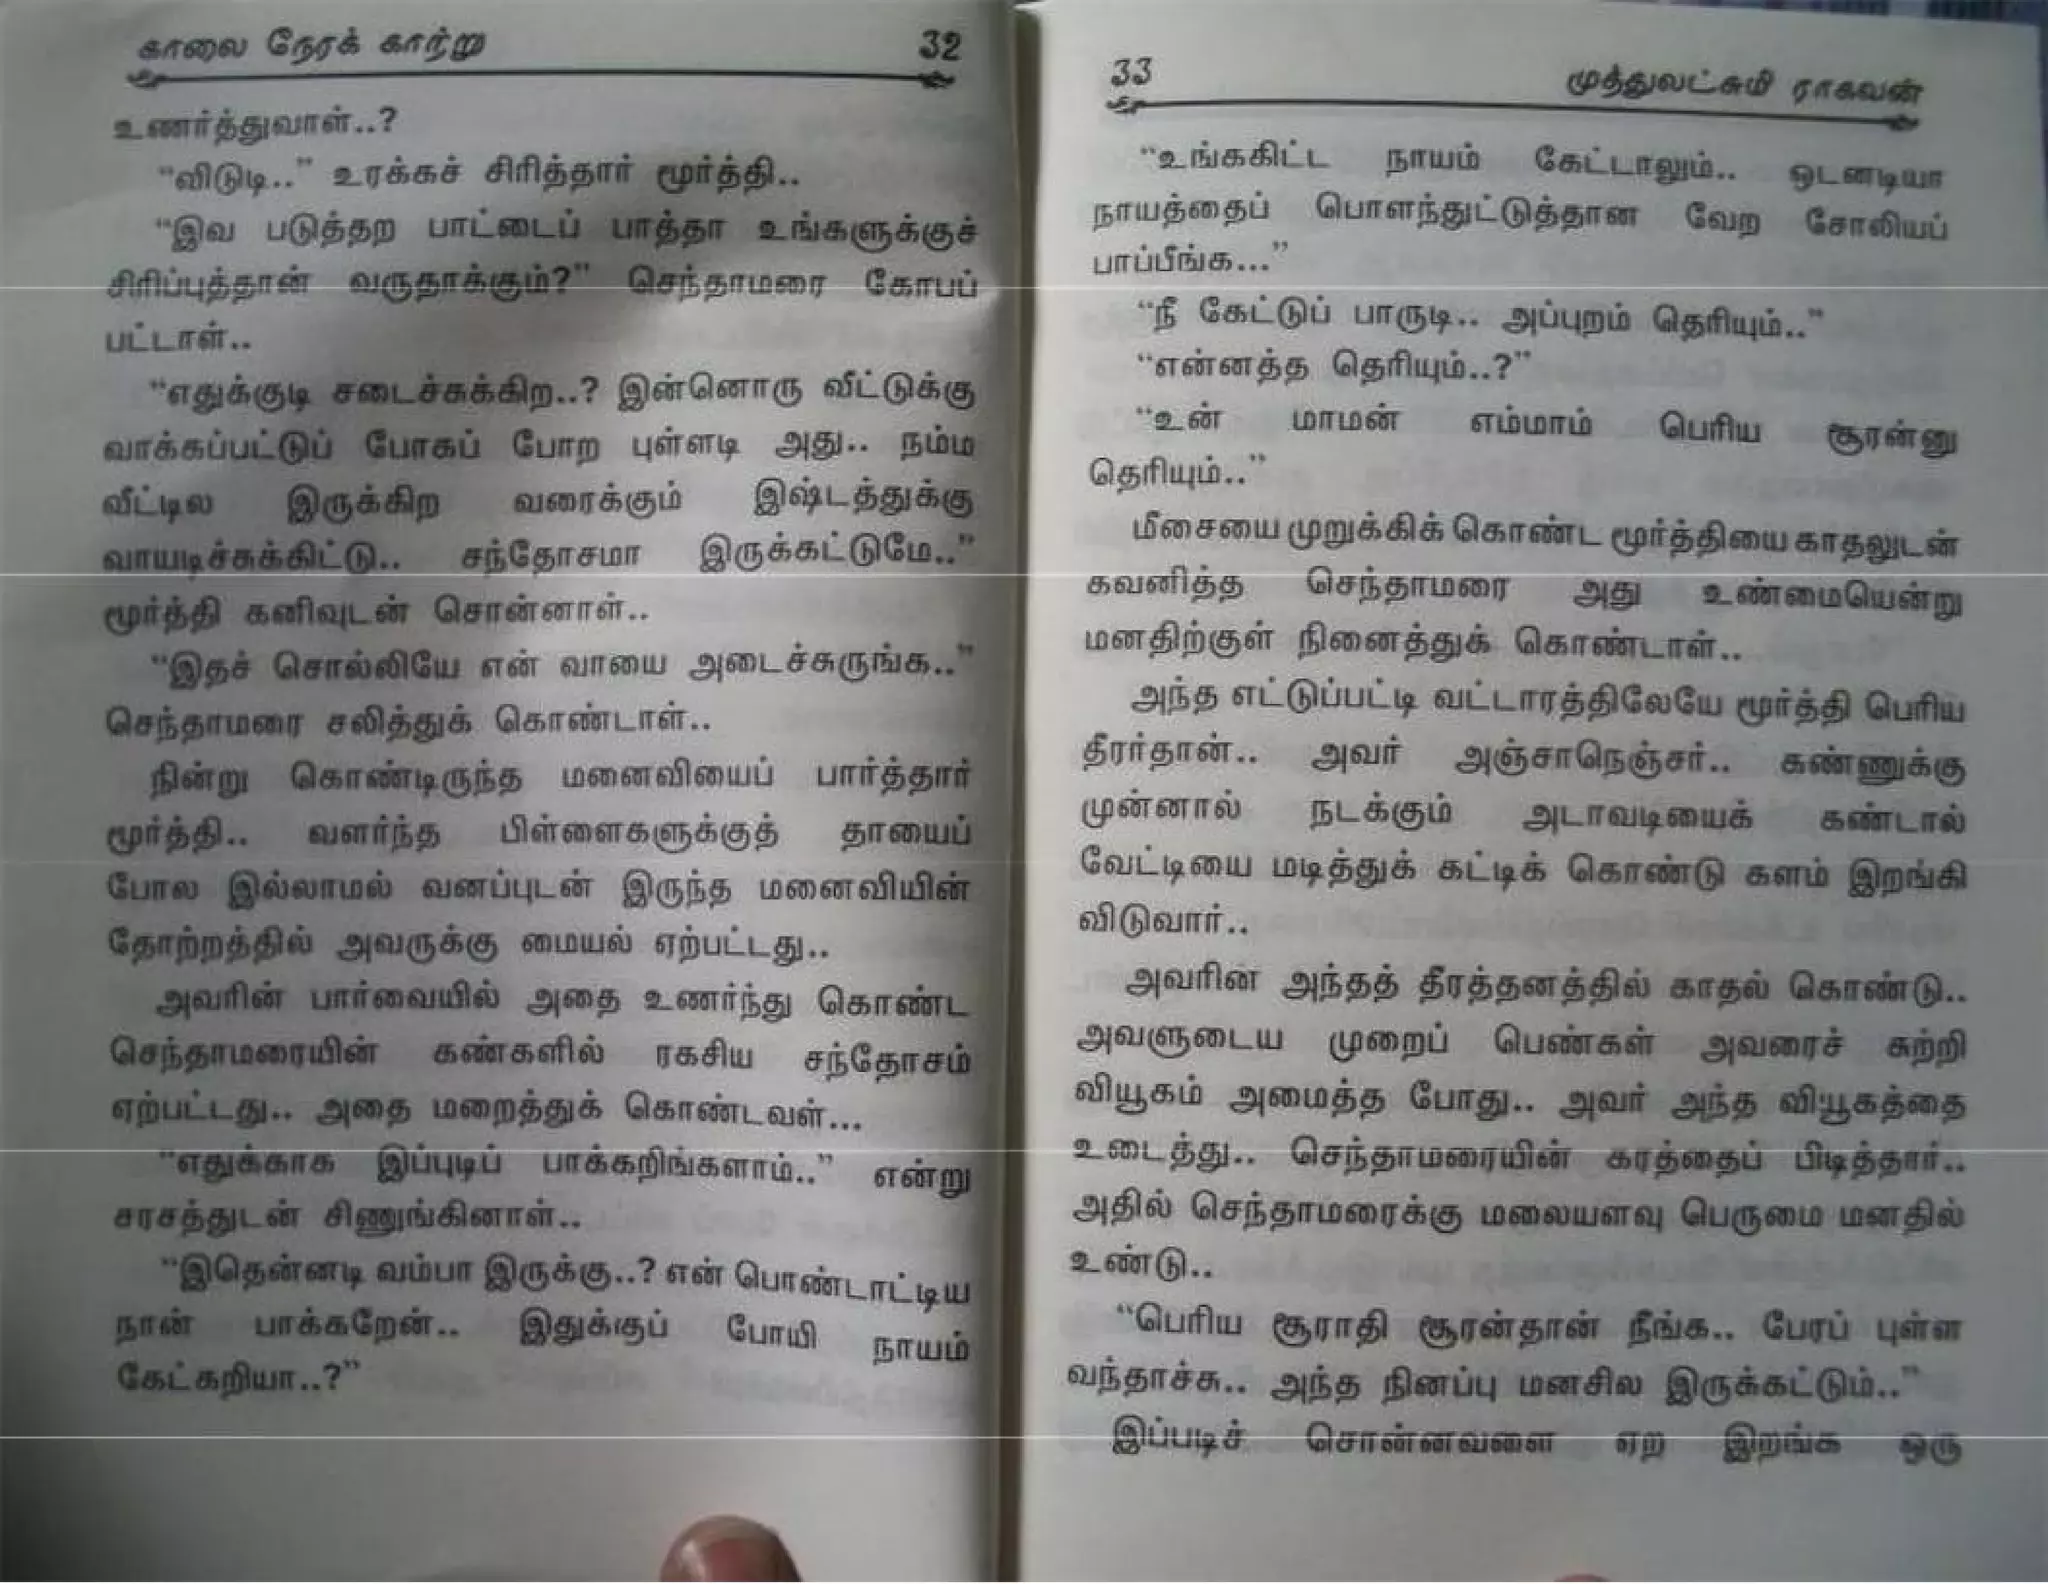 காலை நேரக் காற்று 32
உணர்த்துவாள்..?
“விடுடி..” உரக்கச் சிரித்தார் மூர்த்தி..
“இவ படுத்தற பாட்டைப் பாத்தா உங்களுக்குச்
சிரிப்புத்தான் வருதாக்கும்?” செந்தாமரை கோபப்
பட்டாள்..
“எதுக்குடி சடைச்சுக்கிற..? இன்னொரு வீட்டுக்கு
வாக்கப்பட்டுப் போகப் போற புள்ளடி அது.. நம்ம
வீட்டில இருக்கிற வரைக்கும் இஷ்டத்துக்கு
வாயடிச்சுக்கிட்டு.. சந்தோசமா இருக்கட்டுமே..”
மூர்த்தி கனிவுடன் சொன்னாள்..
“இதச் சொல்லியே என் வாயை அடைச்சுருங்க..”
செந்தாமரை சலித்துக் கொண்டாள்..
நின்று கொண்டிருந்த மனைவியைப் பார்த்தார்
மூர்த்தி.. வளர்ந்த பிள்ளைகளுக்குத் தாயைப்
போல இல்லாமல் வனப்புடன் இருந்த மனைவியின்
தோற்றத்தில் அவருக்கு மையல் ஏற்பட்டது..
அவரின் பார்வையில் அதை உணர்ந்து கொண்ட
செந்தாமரையின் கண்களில் ரகசிய சந்தோசம்
ஏற்பட்டது.. அதை மறைத்துக் கொண்டவள்...
“எதுக்காக இப்புடிப் பாக்கறிங்களாம்..” என்று
சரசத்துடன் சிணுங்கினாள்..
“இதென்னடி வம்பா இருக்கு..? என் பொண்டாட்டிய
நான் பாக்கறேன்.. இதுக்குப் போயி நாயம்
கேட்கறியா..?”
33 முத்துலட்சுமி ராகவன்
“உங்ககிட்ட நாயம் கேட்டாலும்.. ஒடனடியா
நாயத்தைப் பொளந்துட்டுத்தான வேற சோலியப்
பாப்பீங்க...”
“நீ கேட்டுப் பாருடி.. அப்புறம் தெரியும்..”
“என்னத்த தெரியும்..?”
“உன் மாமன் எம்மாம் பெரிய சூரன்னு
தெரியும்..”
மீசையை முறுக்கிக் கொண்ட மூர்த்தியை காதலுடன்
கவனித்த செந்தாமரை அது உண்மையென்று
மனதிற்குள் நினைத்துக் கொண்டாள்..
அந்த எட்டுப்பட்டி வட்டாரத்திலேயே மூர்த்தி பெரிய
தீரர்தான்.. அவர் அஞ்சாநெஞ்சர்.. கண்ணுக்கு
முன்னால் நடக்கும் அடாவடியைக் கண்டால்
வேட்டியை மடித்துக் கட்டிக் கொண்டு களம் இறங்கி
விடுவார்..
அவரின் அந்தத் தீரத்தனத்தில் காதல் கொண்டு..
அவளுடைய முறைப் பெண்கள் அவரைச் சுற்றி
வியூகம் அமைத்த போது.. அவர் அந்த வியூகத்தை
உடைத்து.. செந்தாமரையின் கரத்தைப் பிடித்தார்..
அதில் செந்தாமரைக்கு மலையளவு பெருமை மனதில்
உண்டு..
“பெரிய சூராதி சூரன்தான் நீங்க.. பேரப் புள்ள
வந்தாச்சு.. அந்த நினப்பு மனசில இருக்கட்டும்..”
இப்படிச் சொன்னவளை ஏற இறங்க ஒரு